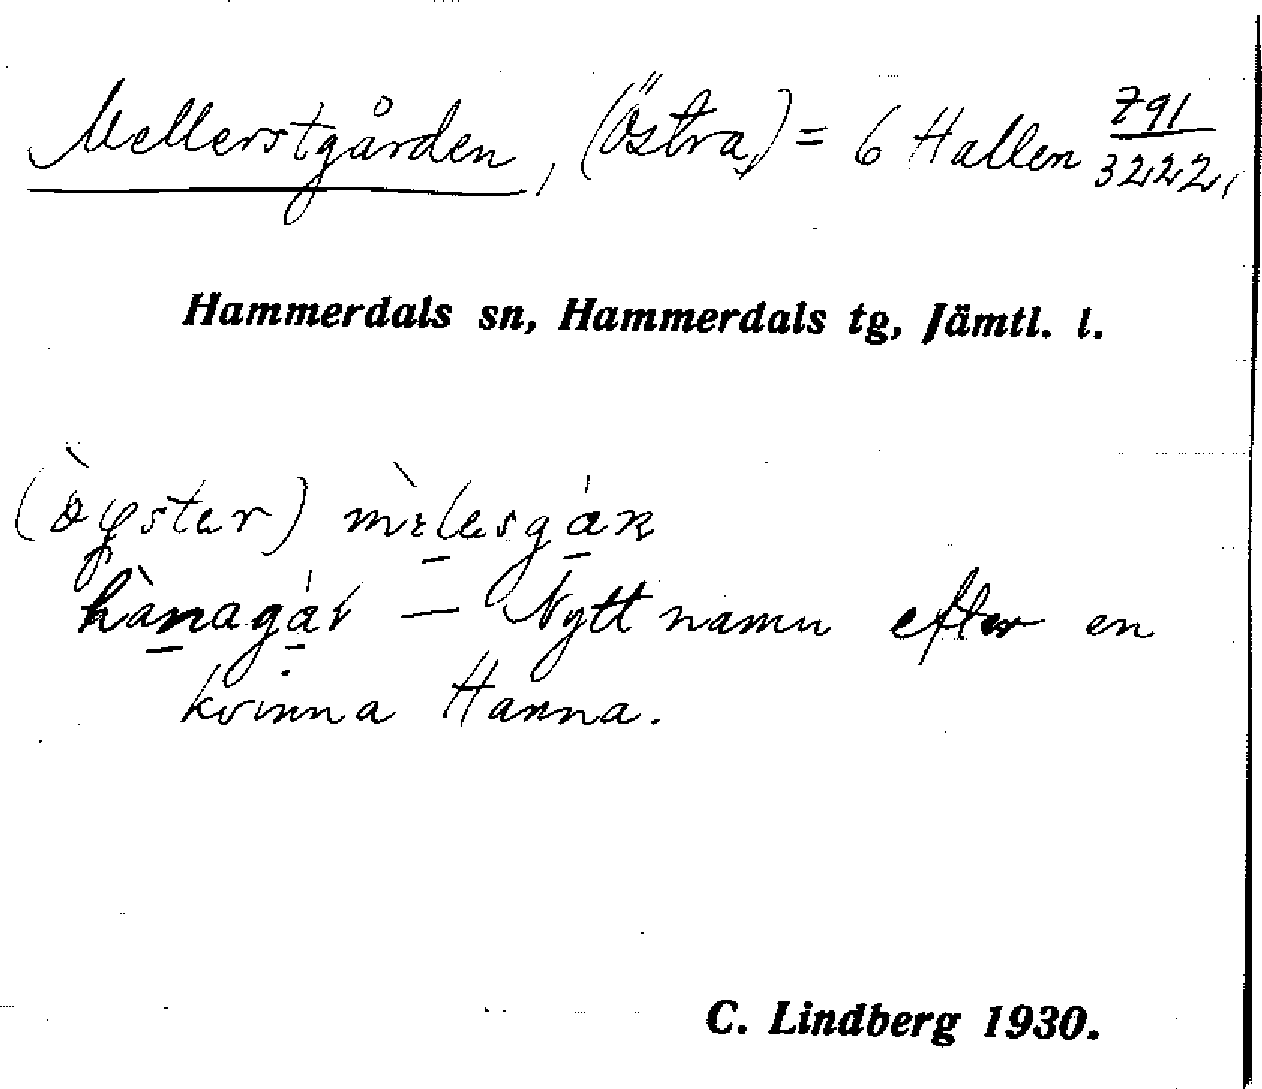 Mellerstgården, (Östra) = 6 Hallen 791/3222,
Hammerdals sn, Hammerdals tg, Jämtl. l.
hànagàr — Nytt namn efter en
kvinna Hanna.
C. Lindberg 1930.